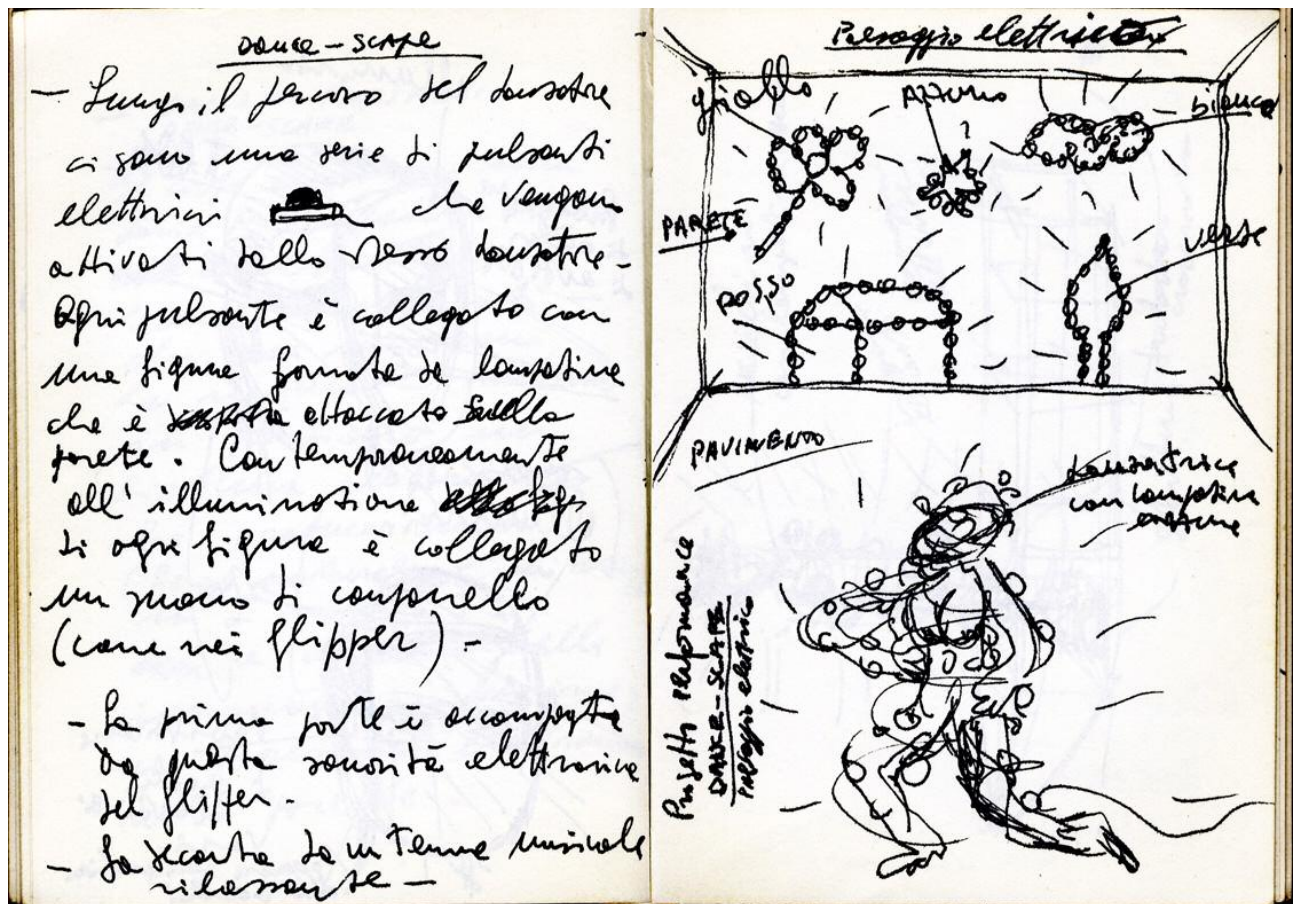 DANCE - SCAPE
- Lungo il percorso del danzatore
ci sono una serie di pulsanti
elettrici che vengono
attivati dallo stesso danzatore -
Ogni pulsante è collegato con
una figura formata da lampadine
che è attaccata sulla
parete. Contemporaneamente
all' illuminazione
di ogni figura è collegato
un suono di campanello
(come nei flipper) -
- La prima parte è accompagnata
da questa sonorità elettronica
del flipper -
- La seconda da un tema musicale
rilassante -
Paesaggio elettrico
giallo
AZZURRO
bianco
PARETE
verde
ROSSO
PAVIMENTO
danzatrice
con lampadine
Progetto performance
DANCE - SCAPE
Paesaggio elettrico